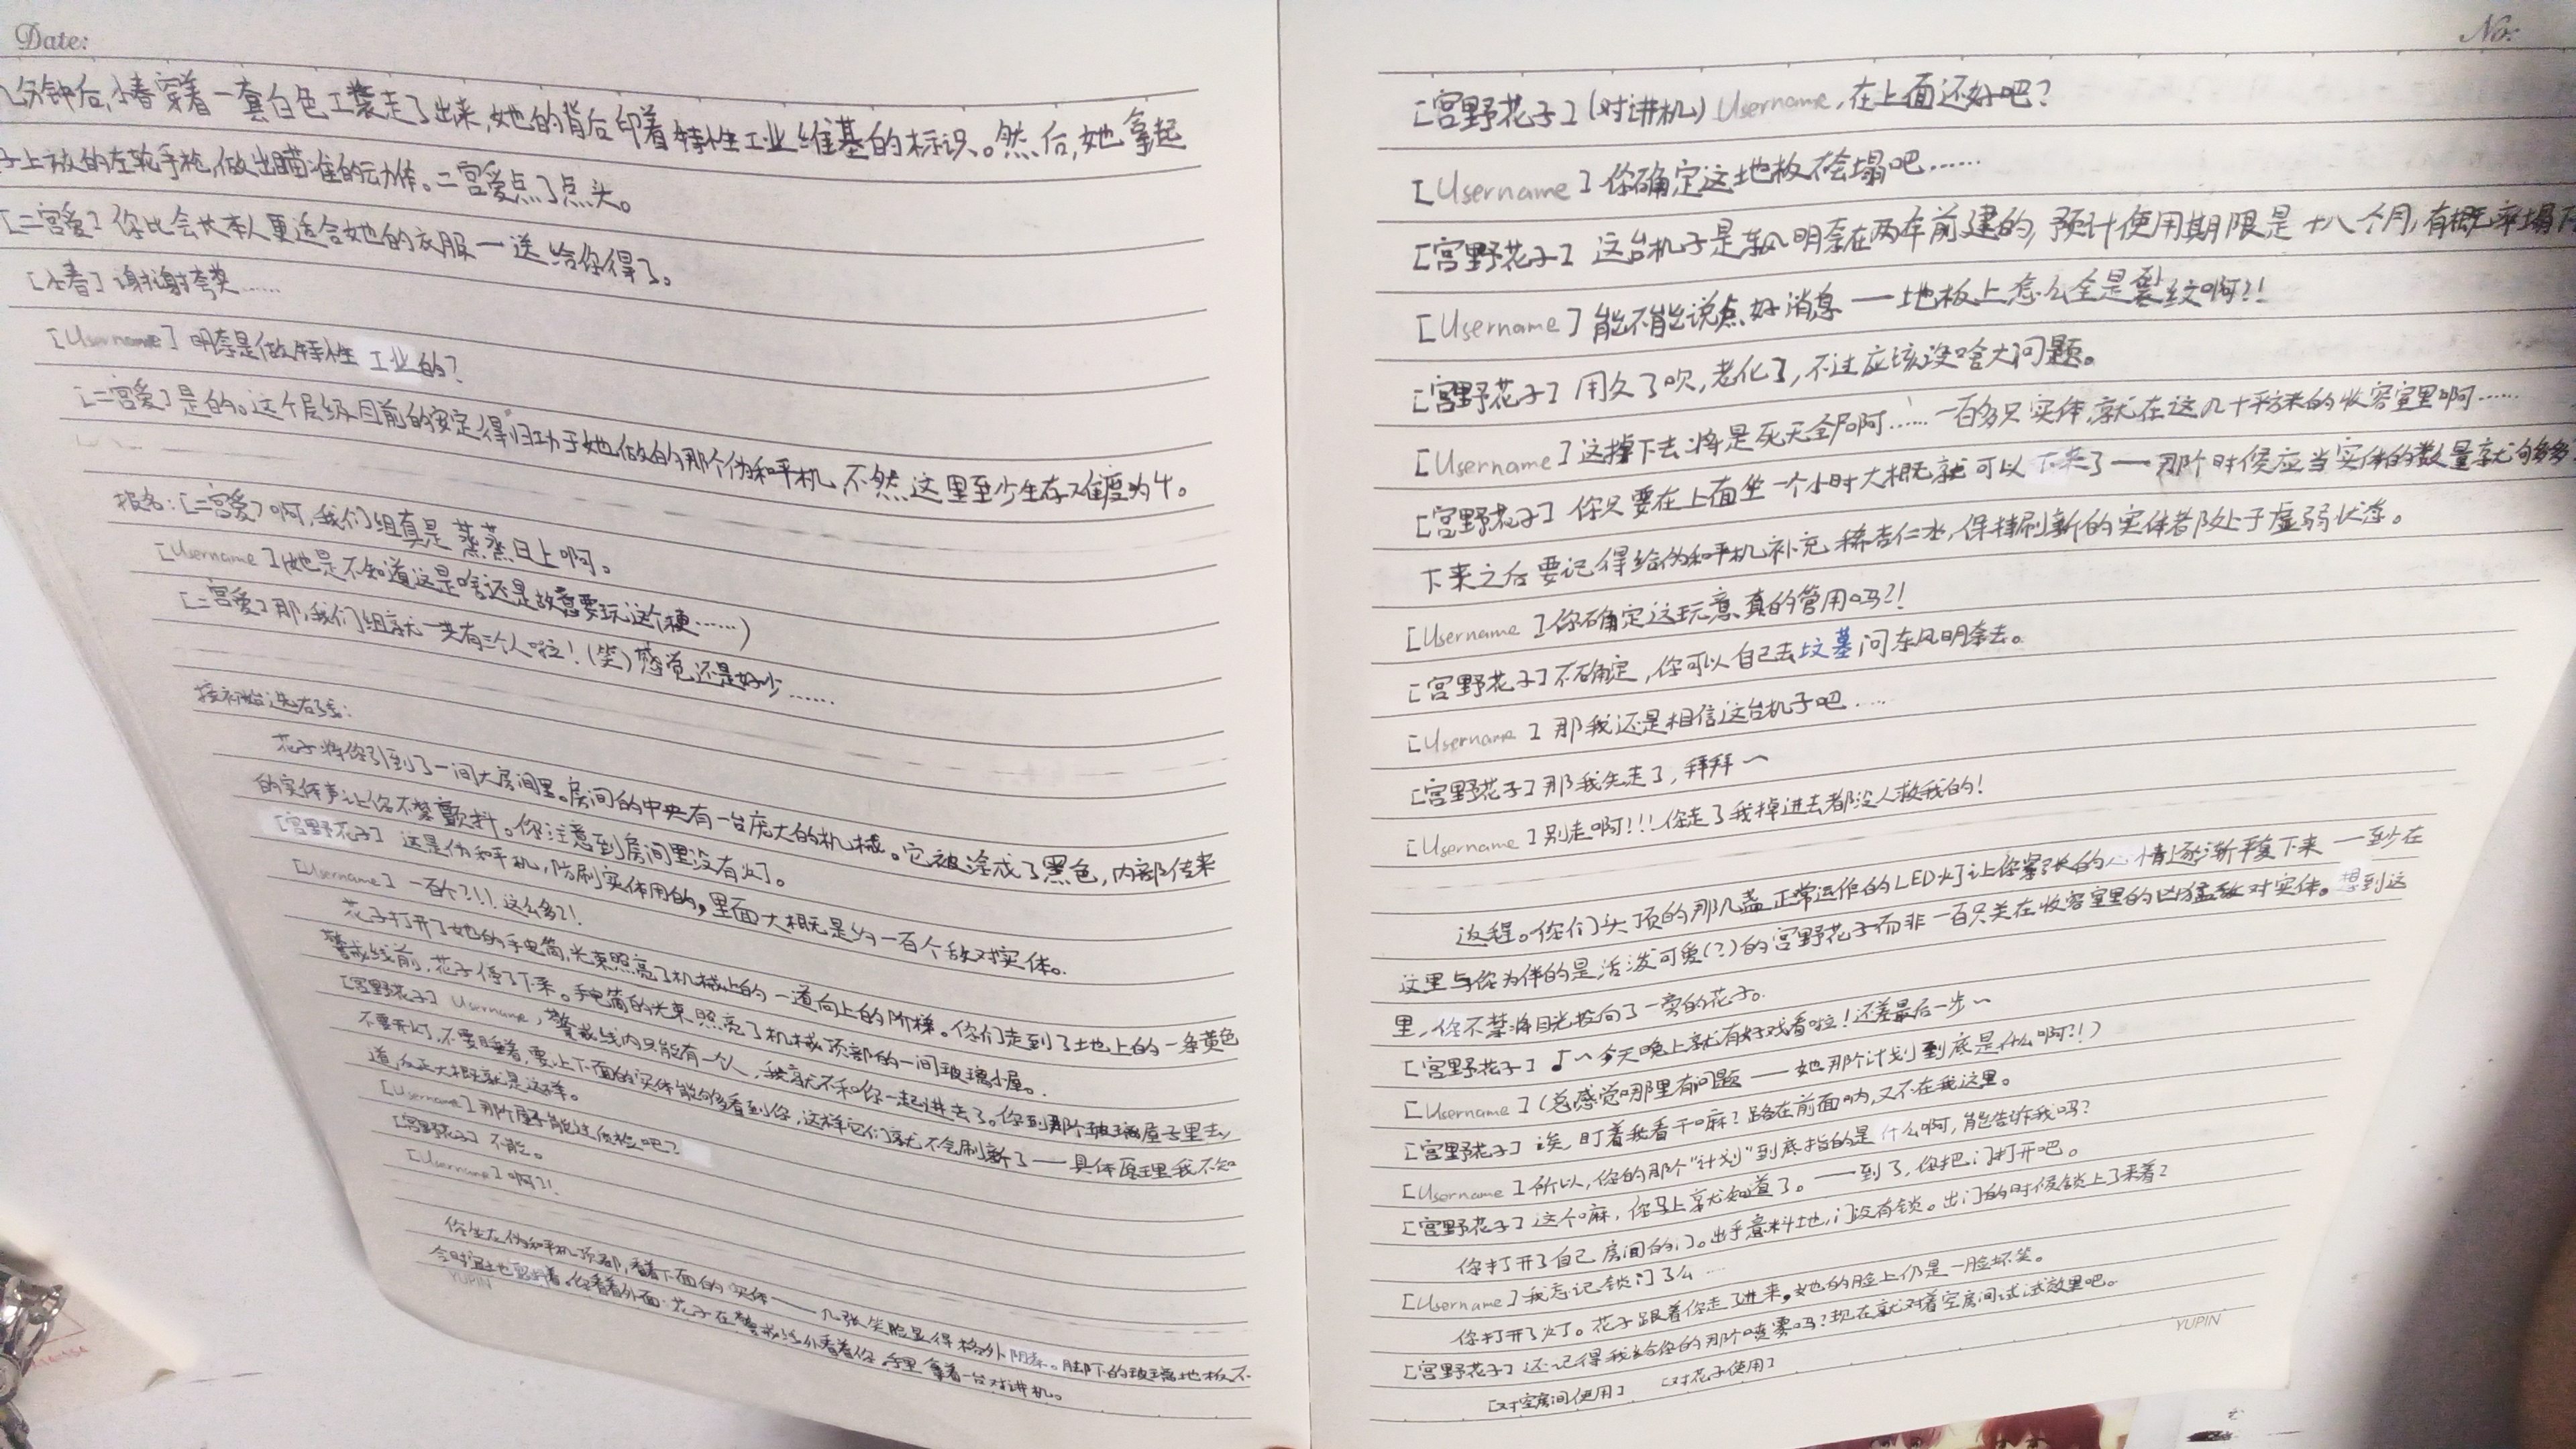 Date:
几分钟后,小春穿着一套白色工装走了出来,她的背后印着特性工业维基的标识。然后,她拿起
子上放的左轮手枪,做出瞄准的动作。二宫爱点了点头。
[二宫爱] 你比会长本人更适合她的衣服——送给你得了。
[小春] 谢谢夸奖……
[Username] 明奈是做特性工业的?
[二宫爱] 是的。这个层级目前的安定得归功于她做的那个伪和平机,不然这里至少生存难度为4。
报名:[二宫爱] 啊,我们组真是蒸蒸日上啊。
[Username] (她是不知道这是啥还是故意要玩这个梗……)
[二宫爱] 那,我们组就一共有三个人啦!(笑)感觉还是好少……
接初始选右线:
花子将你引到了一间大房间里。房间的中央有一台庞大的机械。它被涂成了黑色,内部传来
的实体声让你不禁颤抖。你注意到房间里没有灯。
[宫野花子] 这是伪和平机,防刷实体用的,里面大概是约一百个敌对实体。
[Username] 一百个?!!这么多?!
花子打开了她的手电筒,光束照亮了机械上的一道向上的阶梯。你们走到了土地上的一条黄色
警戒线前,花子停了下来。手电筒的光束照亮了机械顶部的一间玻璃小屋。
[宫野花子] Username,警戒线内只能有一人,我就不和你一起进去了。你到那个玻璃屋子里去,
不要开灯,不要睡着,要上下面的实体能够多看到你,这样它们就不会刷新了——具体原理我不知
道,反正大概就是这样。
[Username] 那个屋子能过质检吧?
[宫野花子] 不能。
[Username] 啊?!
你坐在伪和平机顶部,看着下面的实体——几张笑脸显得格外阴森。脚下的玻璃地板不
令时宜地颤抖着。你看着外面:花子在警戒线外看着你,手里拿着一台对讲机。
YUPIN
No:
[宫野花子] (对讲机) Username,在上面还好吧?
[Username] 你确定这地板不会塌吧……
[宫野花子] 这台机子是东风明奈在两年前建的,预计使用期限是十八个月,有概率塌
[Username] 能不能说点好消息——地板上怎么全是裂纹啊?!
[宫野花子] 用久了吹,老化了,不过应该没啥大问题。
[Username] 这掉下去将是死无全尸啊……一百多只实体,就在这几十平方米的收容室里啊……
[宫野花子] 你只要在上面坐一个小时大概就可以下来了——那个时候应当实体的数量就够多
下来之后要记得给伪和平机补充稀杏仁水,保持刷新的实体都处于虚弱状态。
[Username] 你确定这玩意真的管用吗?!
[宫野花子] 不确定,你可以自己去坟墓问东风明奈去。
[Username] 那我还是相信这台机子吧……
[宫野花子] 那我先走了,拜拜~
[Username] 别走啊!!!你走了我掉进去都没人救我的!
返程。你们头顶的那几盏正常运作的LED灯让你紧张的心情逐渐平复下来——至少在
这里与你为伴的是活泼可爱(?)的宫野花子而非一百只关在收容室里的凶猛敌对实体。想到这
里,你不禁将目光投向了一旁的花子。
[宫野花子] ♪~今天晚上就有好戏看啦!还差最后一步~
[Username] (总感觉哪里有问题——她那个计划到底是什么啊?!)
[宫野花子] 诶,盯着我看干嘛?路在前面呐,又不在我这里。
[Username] 所以,你的那个“计划”到底指的是什么啊,能告诉我吗?
[宫野花子] 这个嘛,你马上就知道了。——到了,你把门打开吧。
你打开了自己房间的门。出乎意料地,门没有锁。出门的时候锁上了来着?
[Username] 我忘记锁门了么…
你打开了灯。花子跟着你走了进来,她的脸上仍是一脸坏笑。
[宫野花子] 还记得我给你的那个喷雾吗?现在就对着空房间试试效果吧。
[对空房间使用] [对花子使用]
YUPIN